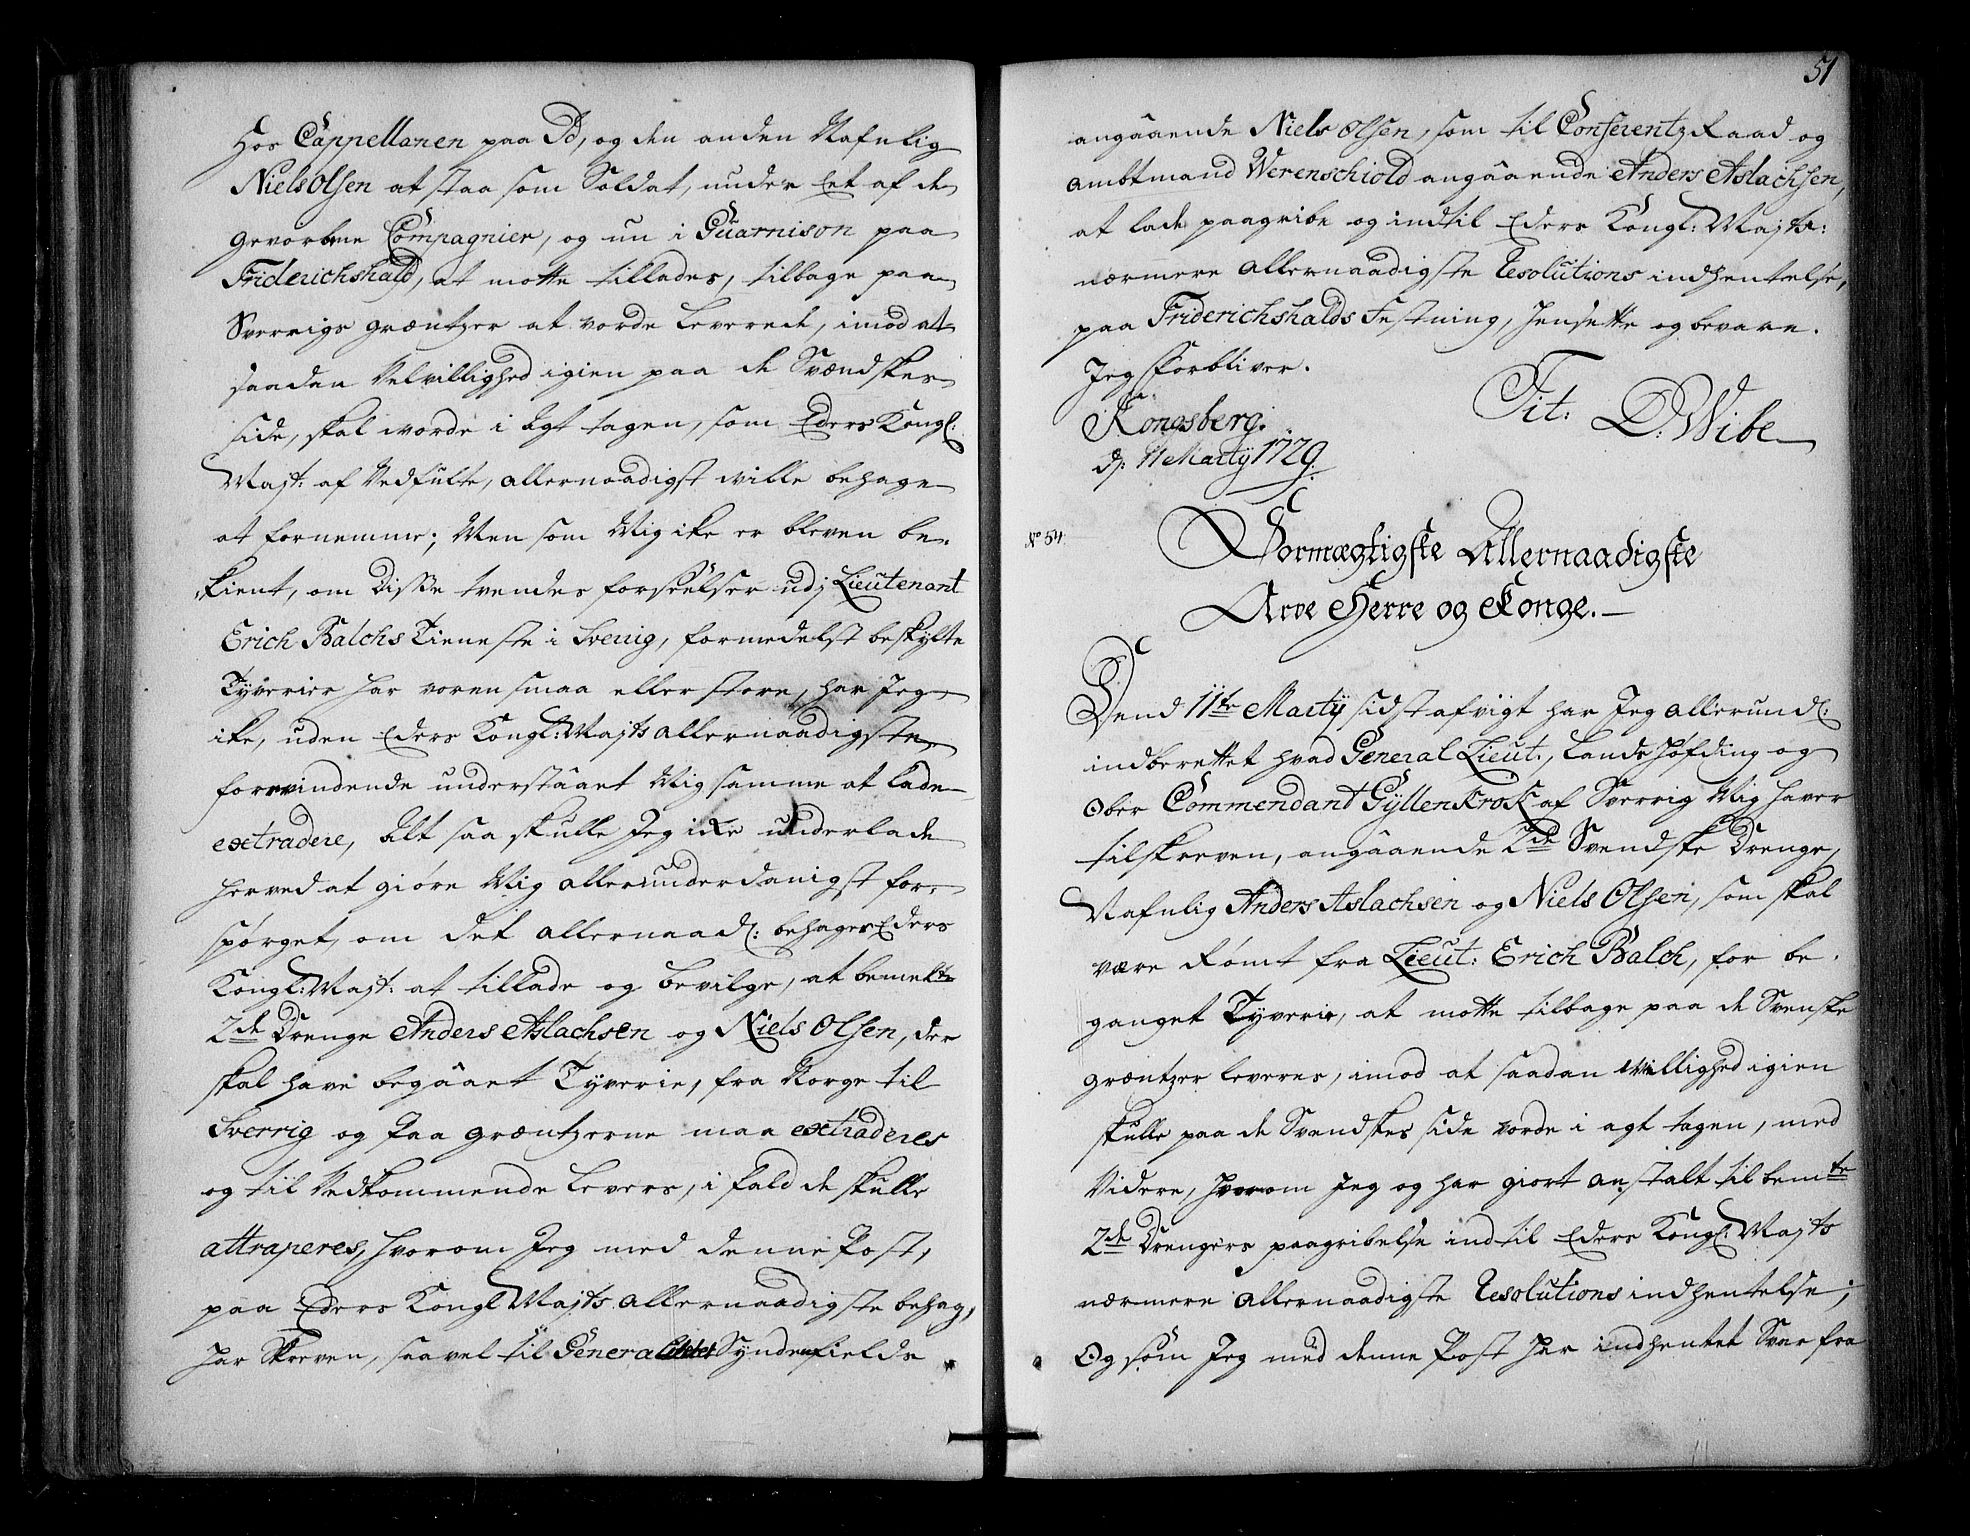 Hos Cappellanen paa Id, og den anden Nafnlig
Niels Olsen at staa som Soldat, under Eet af de
gevorbne Compagnier, og nu i Guarnison paa
Friderichshald, at motte tillades, tilbage paa
Sverrigs grændtzer at vorde leverede, imod at
saadan Velvillighed igien paa de Svændskes
side, skal worde i Agt tagen, som Eders Kongl:
Majt: af Vedfulte, allernaadigst wille behage
at fornemme; Men som Mig ike er bleven be-
kient, om Disse tvendes forseelser udj Lieutenant
Erich Balchs Tieneste i Sverrig, formedelst beskylte
Tyverier har voren smaa eller store, har Jeg
ike, uden Eders Kongl: Majts allernaadigste
forevindende understaaet Mig samme at lade
extradere, Alt saa skulle Jeg ike underlade
herved at giøre Mig allerunderdanigst for-
spørget, om det allernaad: behager Eders
Kongl: Majt: at tillade og bevilge, at bemelte
2de Drenge Anders Aslachsen og Niels Olsen, der
skal have begaaet Tyverie, fra Norge til
Sverrig og paa grændtzerne maa extraderes
og til Vedkommende levers, i fald de skulle
attraperes, hvorom Jeg med denne Post,
paa Eders Kongl Majts allernaadigste behag,
har Skreven, saavel til General Synderfields
51
angaaende Niels Olsen, som til Conferentz Raad og
Ambtmand Werenschiold angaaende Anders Aslachsen,
at lade paagribe og indtil Eders Kongl: Majts:
nærmere allernaadigste Resolutions indhentelse,
paa Friderichshalds Festning, hensette og bevare.
Jeg forbliver.
Tit: D: Wibe
Kongsberg.
d: 11 Marty 1729.
No 54:
Stormægtigste Allernaadigste
Arve Herre og Konge.
Dend 11te Marty sidst afvigt har Jeg allerund:
indberettet hvad General Lieut:, Lands Høfding og
Ober Commendant Gyllenkrok af Sverrig Mig haver
tilskreven, angaaende 2de Svendske Drenge,
Nafnlig Anders Aslachsen og Niels Olsen, som skal
være Rømt fra Lieut: Erich Balch, for be-
ganget Tyverie, at motte tilbage paa de Svenske
grændtzer leveres, imod at saadan Willighed igien
skulle paa de Svendskes side vorde i agt tagen, med
Videre, hvorom Jeg og har giort anstalt til bemte
2de Drengers paagribelse indtil Eders Kongl: Majts
nærmere allernaadigste Resolutions indhentelse;
Og som Jeg med denne Post har indhentet Svar fra